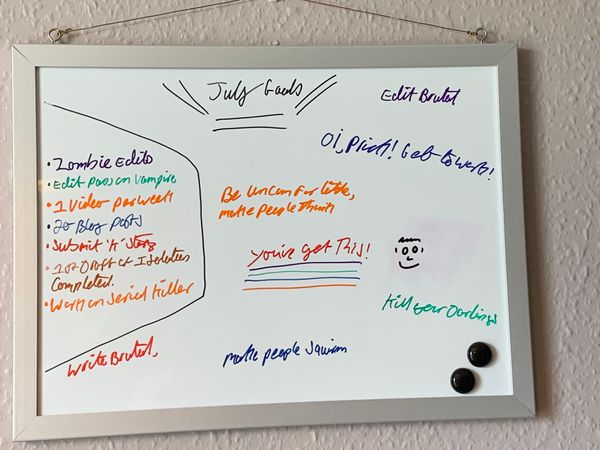 July Goals
Edit Brutal
Oi, Prick! Get to work!
• Zombie Edits
• Edit Pass on Vampire
• 1 Video per week
• 20 Blog Posts
• Submit 'A' Story
• 1st Draft of Isolation
Completed.
• Work on Serial Killer
Be Uncomfortable,
make People Think
You've got This!
Kill your Darlings
Write Brutal,
make people squirm